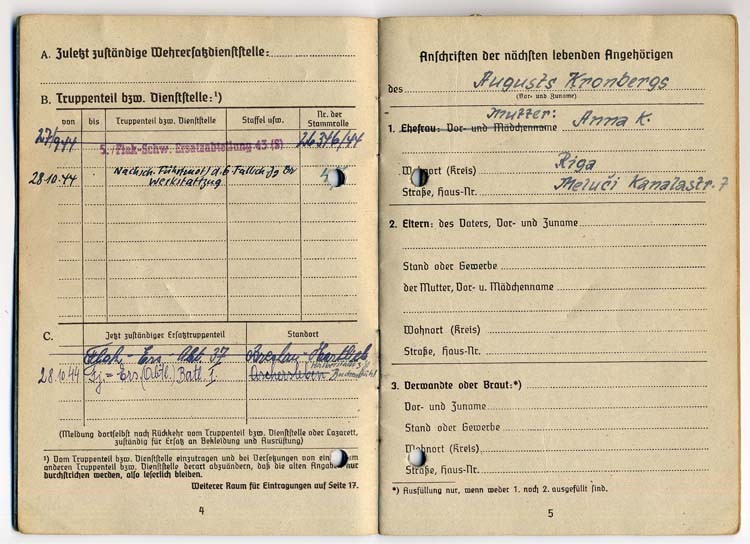 A. Zuletzt zuständige Wehrersatzdienststelle:
B. Truppenteil bzw. Dienststelle:¹)
von bis Truppenteil bzw. Dienststelle Staffel usw. Nr. der Stammrolle
27/9 44 5. Flak-Schw. Ersatzabteilung 43 (S) 26346/44
28.10.44 Nachsch. d. 6 Fallsch.
Werkstattzug
C. Jetzt zuständiger Ersatztruppenteil Standort
Flak-Ers-Abt. 37 Breslau-Hartlieb
28.10.44 Ers. (Abtl.) Batl. I Aschersleben
(Meldung dortselbst nach Rückkehr vom Truppenteil bzw. Dienststelle oder Lazarett,
zuständig für Ersatz an Bekleidung und Ausrüstung)
¹) Vom Truppenteil bzw. Dienststelle einzutragen und bei Versetzungen von einem zum
anderen Truppenteil bzw. Dienststelle derart abzuändern, daß die alten Angaben nur
durchstrichen werden, also leserlich bleiben.
Weiterer Raum für Eintragungen auf Seite 17.
4
Anschriften der nächsten lebenden Angehörigen
des Augusts Kronbergs
(Vor- und Zuname)
Mutter:
1. Ehefrau: Vor- und Mädchenname Anna K.
Wohnort (Kreis) Riga
Straße, Haus-Nr. Kanalastr. 7
2. Eltern: des Vaters, Vor- und Zuname
Stand oder Gewerbe
der Mutter, Vor- u. Mädchenname
Wohnort (Kreis)
Straße, Haus-Nr.
3. Verwandte oder Braut:*)
Vor- und Zuname
Stand oder Gewerbe
Wohnort (Kreis)
Straße, Haus-Nr.
*) Ausfüllung nur, wenn weder 1. noch 2. ausgefüllt sind.
5